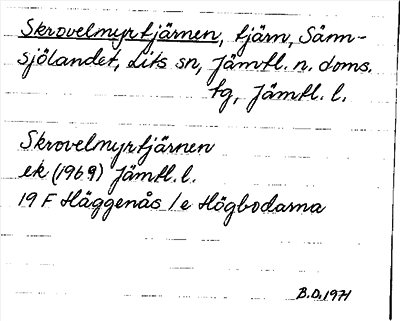 Skrovelmyrtjärnen, tjärn, Sänn-
sjölandet, Lits sn, Jämtl. n. doms.
tg, Jämtl. l.
Skrovelmyrtjärnen
ek (1969) Jämtl. l.
19 F Häggenås /e Högbodarna
B.D. 1971